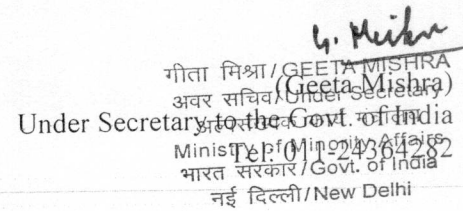 G. Mishra
गीता मिश्रा/GEETA MISHRA
(Geeta Mishra)
अवर सचिव/Under Secretary
Under Secretary to the Govt. of India
अल्पसंख्यक कार्य मंत्रालय
Ministry of Minority Affairs
Tel: 011-24364282
भारत सरकार/Govt. of India
नई दिल्ली/New Delhi